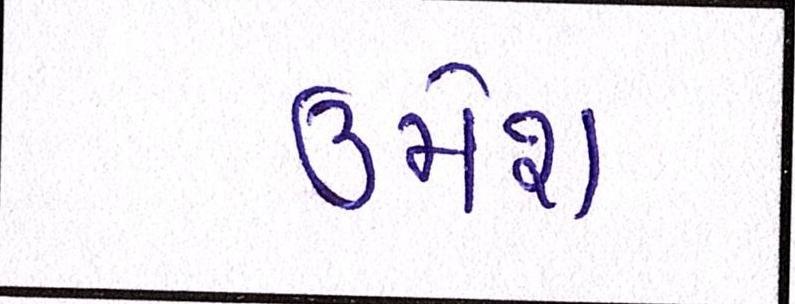 ઉમેશ